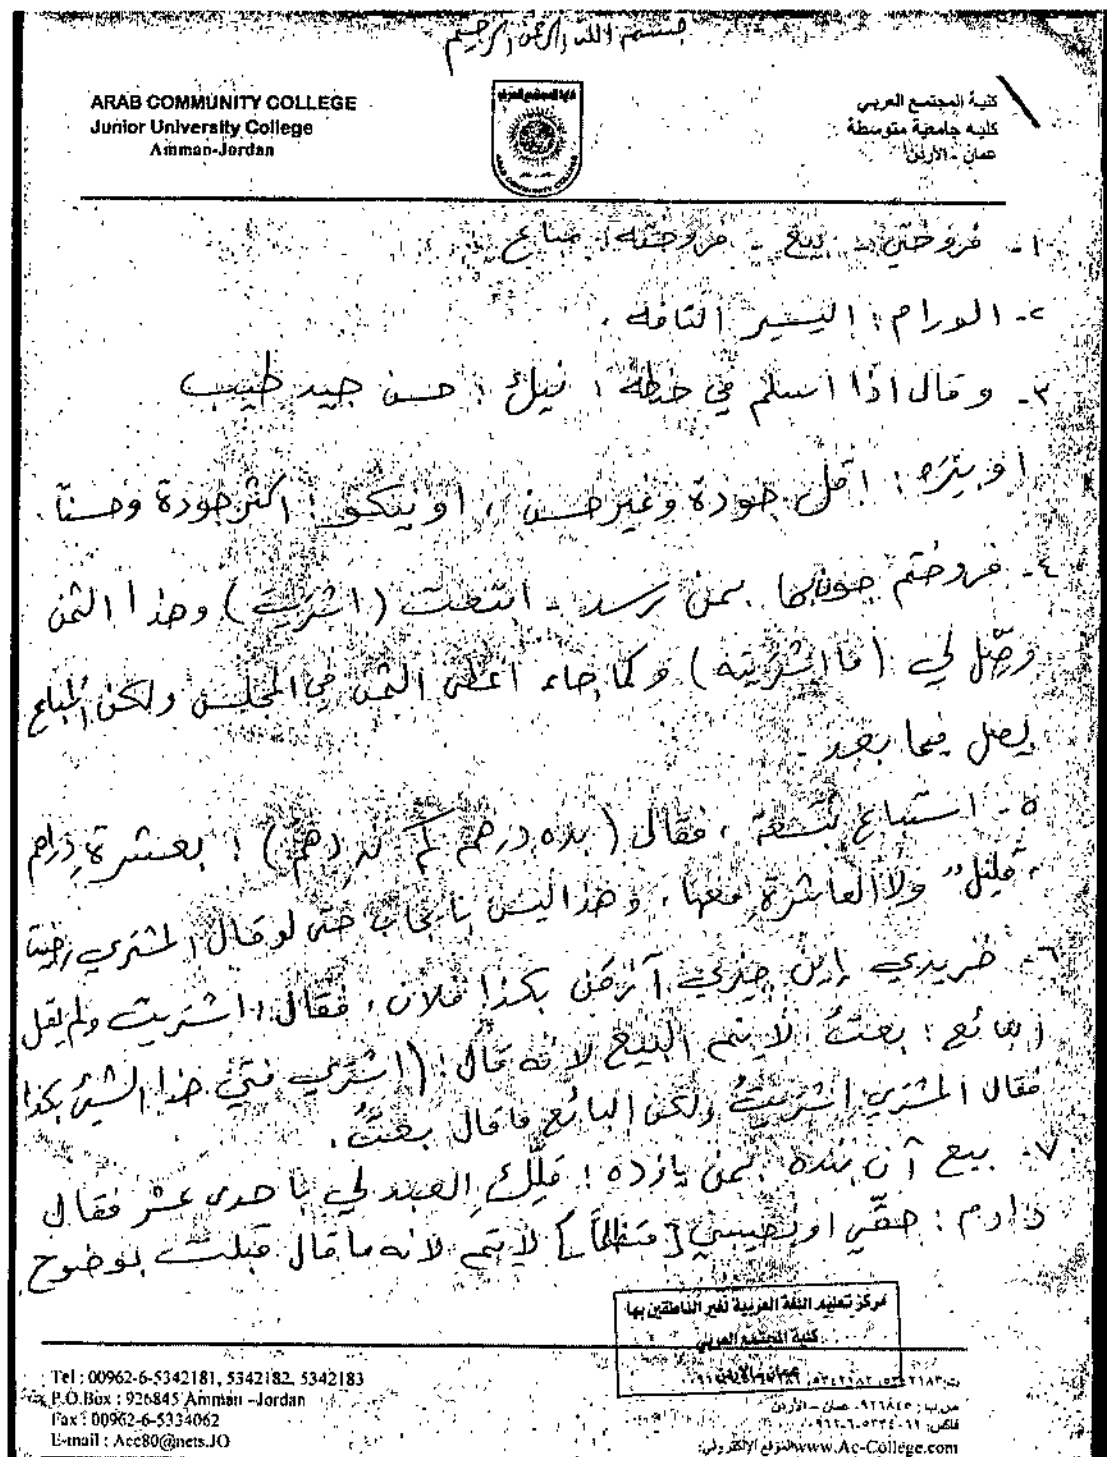 بسم الله الرحمن الرحيم
ARAB COMMUNITY COLLEGE
Junior University College
Amman-Jordan
كلية المجتمع العربي
كلية جامعية متوسطة
عمان - الأردن
ARAB COMMUNITY COLLEGE
١- فروختن - بيع - فروخته: مباع
٢- الورام: اليسير التافه.
٣- وقال اذا اسلم في حنطة: نيك: حسن جيد طيب
او بتره: اقل جودة وغير حسن، او نيكو: اكثر جودة وحسناً.
٤- فروختم بمن رسد - ابتعت (اشتريت) وهذا الثمن
وصّل لي (ما اشتريته) وكما جاء اعطى الثمن في المجلس ولكن المباع
يصل فيما بعد.
٥- استباع بتسعة، فقال (بده درهم كم): بعشرة دراهم
"قليل" ولا العاشرة معها، وهذا ليس بايجاب حتى لو قال المشتري رضيت
٦- خريدي اين بكذا فلان، فقال: اشتريت ولم يقل
البائع: بعتُ لا يتم البيع لانه قال: (اشتري مني هذا الشيء بكذا
فقال المشتري اشتريتُ ولكن البائع ما قال بعتُ.
٧- بيع آن بنده بمن يازده: ملّك العبد لي باحدى عشر فقال
دادم: حقّي او نصيبي [متظلماً] لا يتم لانه ما قال قبلت بوضوح
مركز تعليم اللغة العربية لغير الناطقين بها
كلية المجتمع العربي
عمان - الأردن
Tel : 00962-6-5342181, 5342182, 5342183
P.O.Box : 926845 Amman -Jordan
Fax : 00962-6-5334062
E-mail : Acc80@nets.JO
ص.ب: ٩٢٦٨٤٥ عمان - الأردن
فاكس: ٠٠٩٦٢-٦-٥٣٣٤٠٦٢
الموقع الإلكتروني: www.Ac-College.com